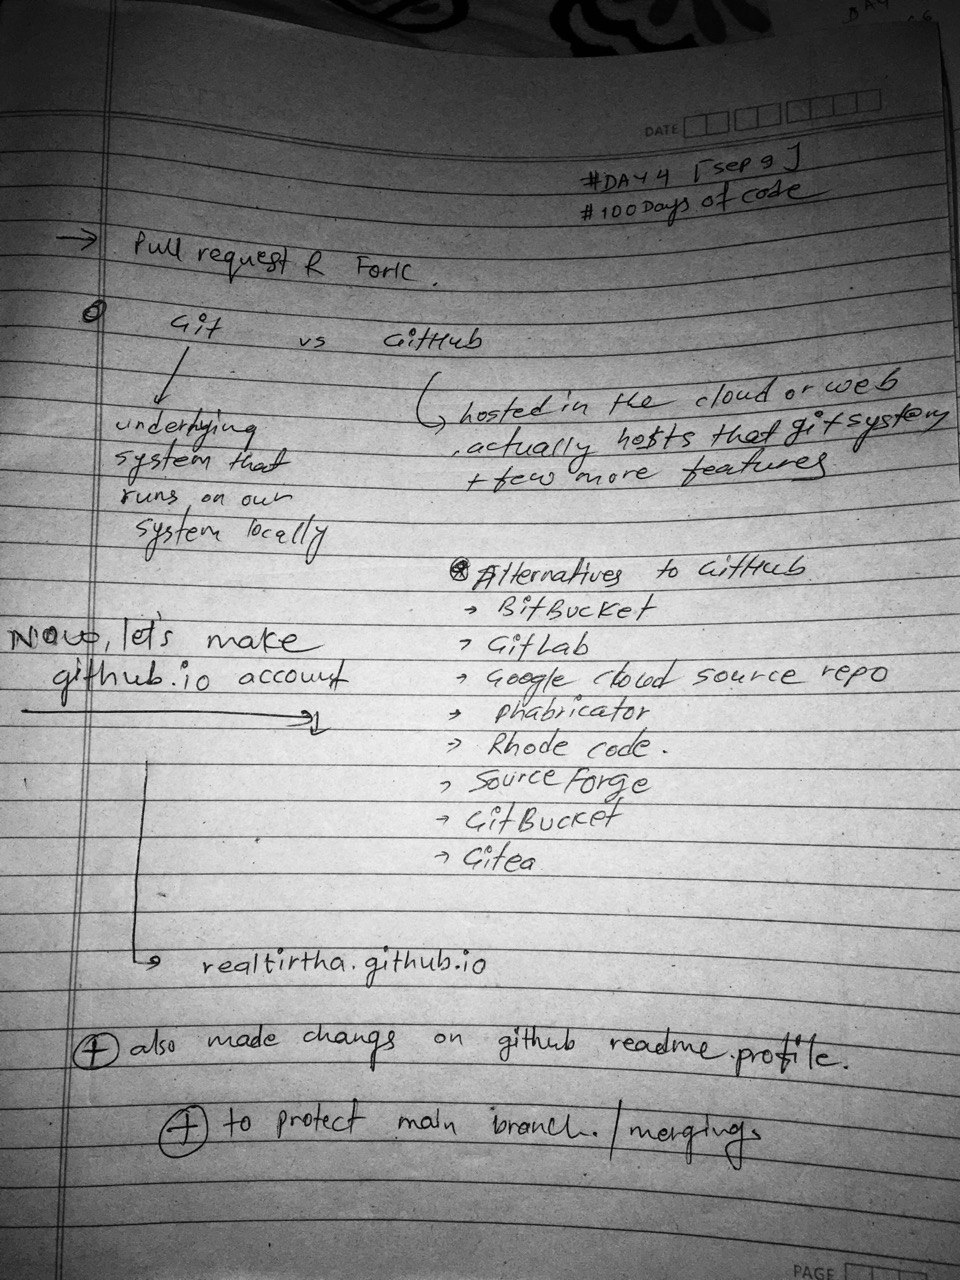 DATE
#DAY 4 [Sep 9]
#100Days of code
→ Pull request & Fork.
Git vs GitHub
underlying
system that
runs on our
system locally
hosted in the cloud or web
actually hosts that git system
+ few more features
Alternatives to GitHub
→ BitBucket
→ GitLab
→ Google cloud source repo
→ phabricator
→ Rhode code.
→ SourceForge
→ GitBucket
→ Gitea
Now, let's make
github.io account
realtirtha.github.io
+ also made changs on github readme.profile.
+ to protect main branch. / mergings
PAGE